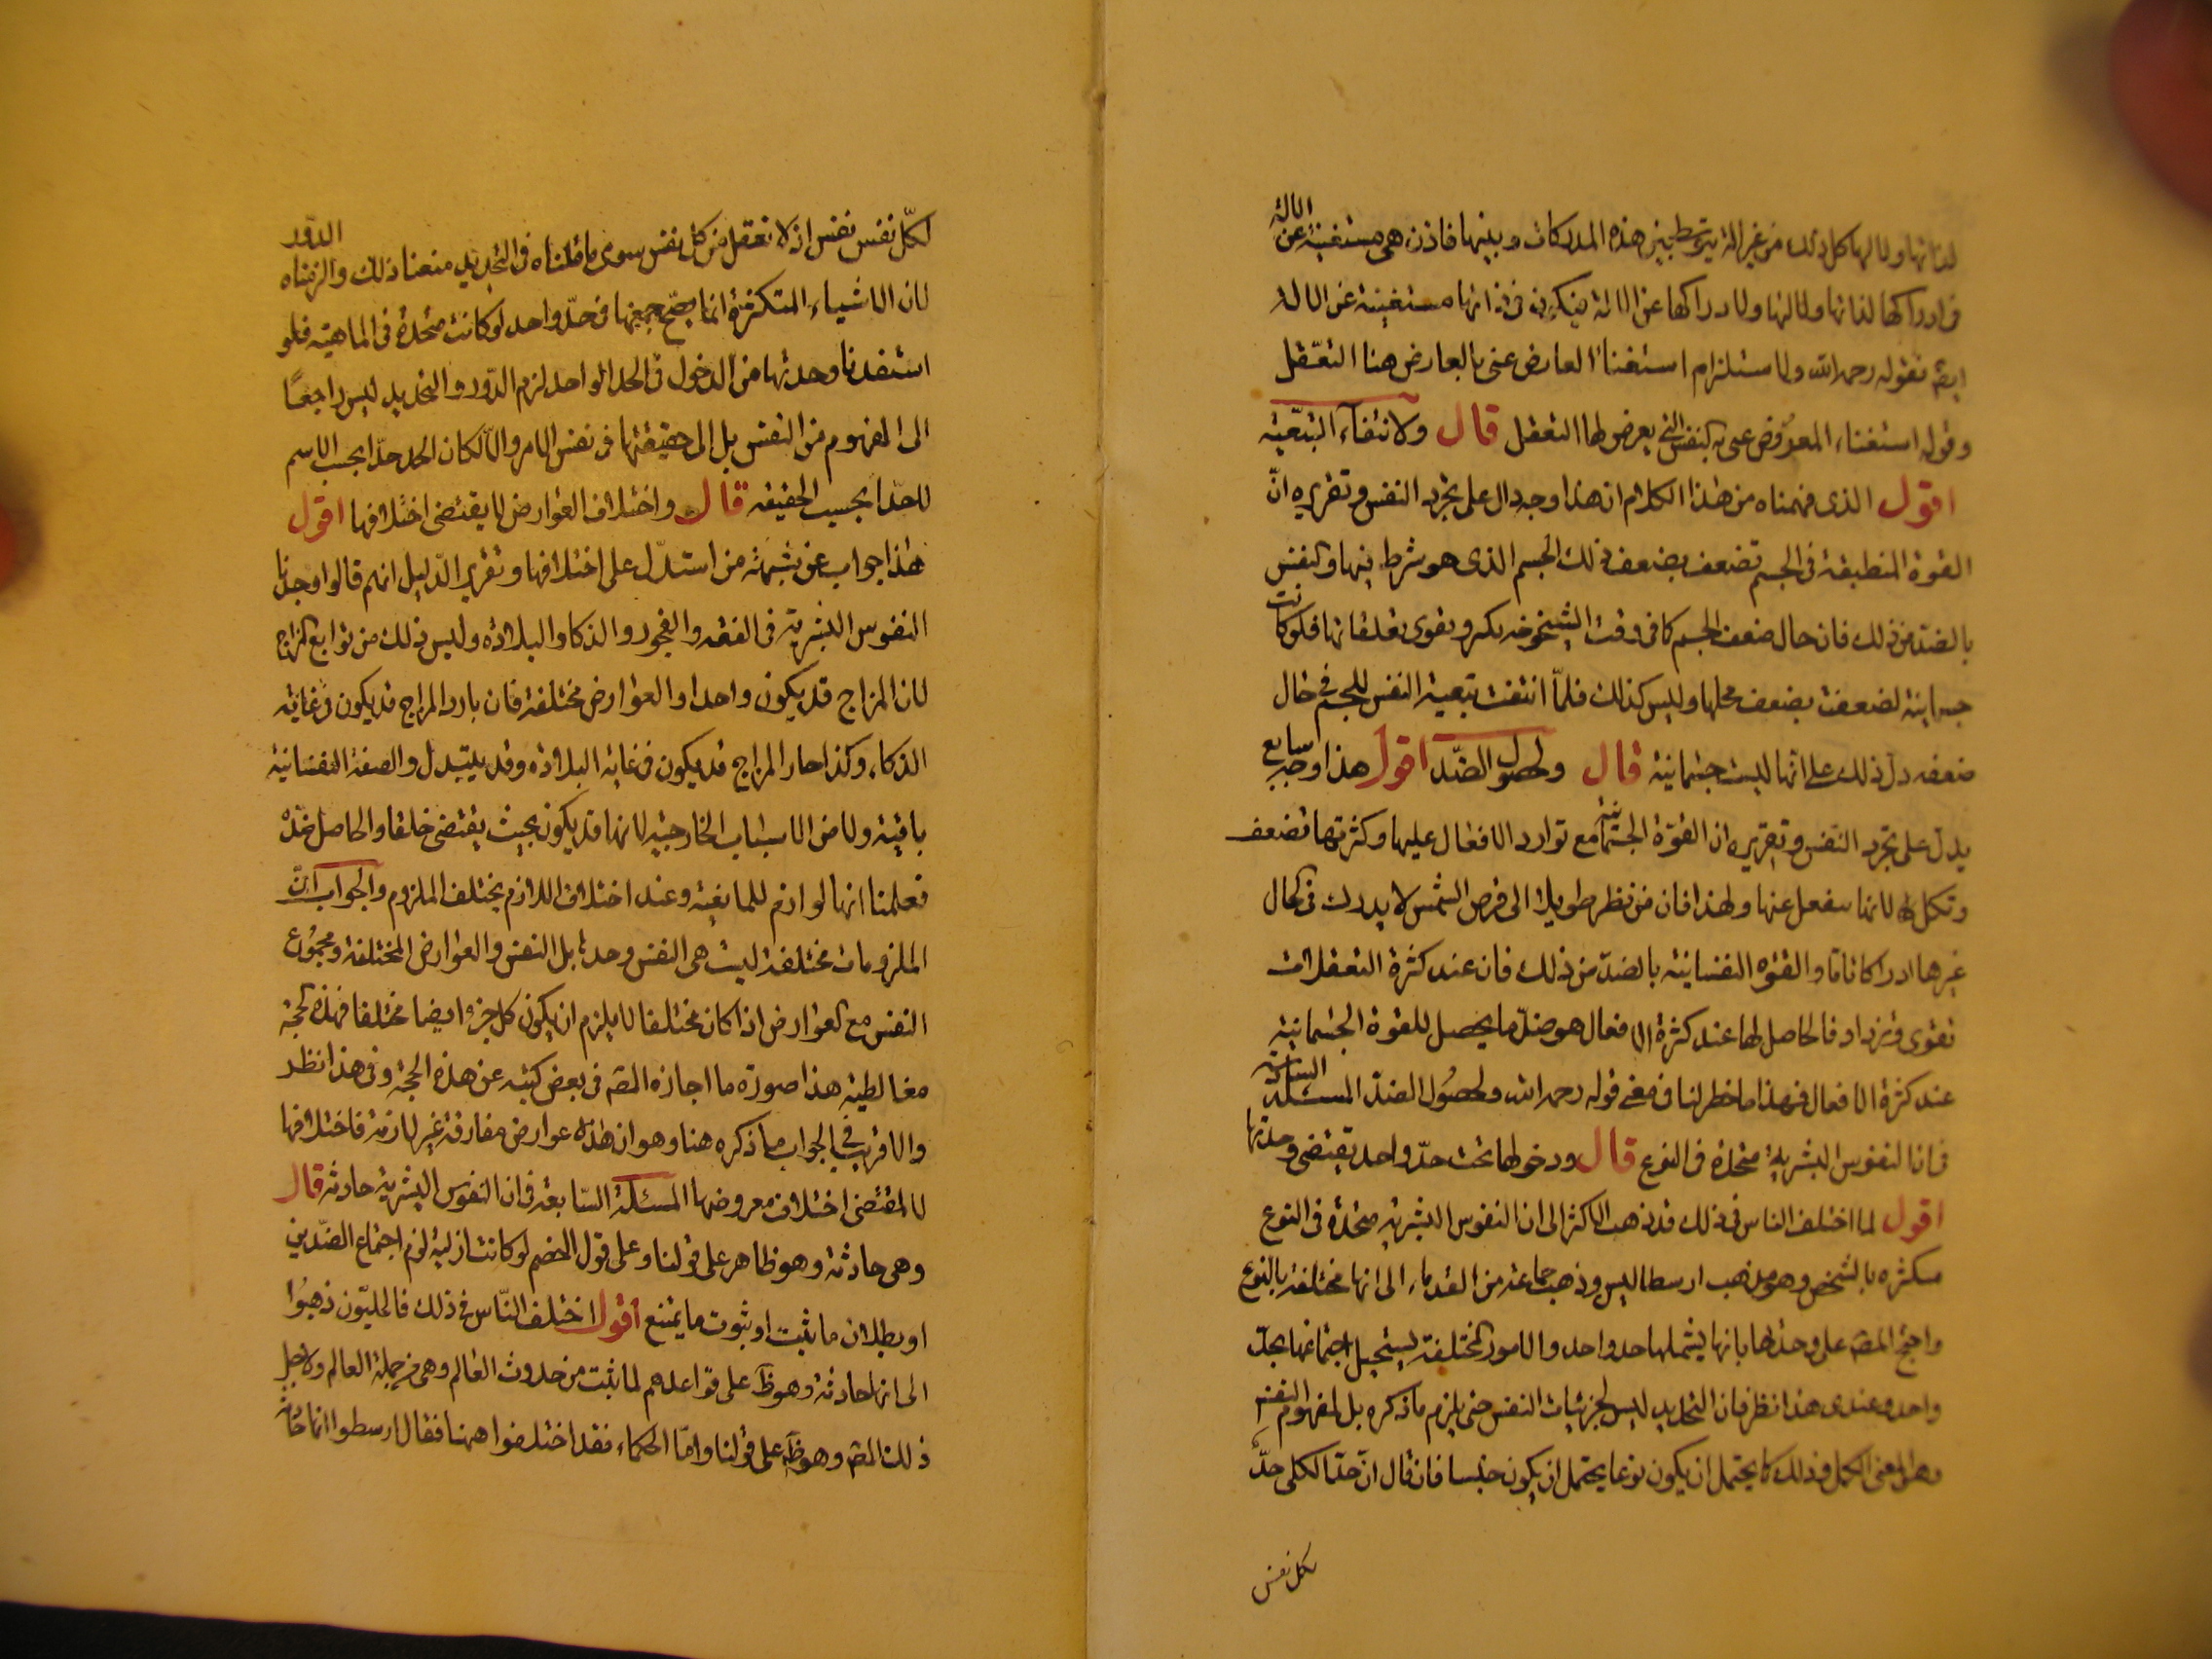 لذاتها ولالتها كل ذلك من غير الة يتوسط بين هذه المدركات وبينها فاذن هى مستغنية عن الالة
فى ادراكها لذاتها ولالتها ولادراكها عن الالة فيكون فى ذاتها مستغنية عن الالة
ايضه فقوله رحمه الله ولاستلزام استغناء العارض عنى بالعارض هنا التعقل
وقوله استغناء المعروض عنى به النفس التى يعرض لها التعقل قال ولانتفاء التبعية
اقول الذى فهمناه من هذا الكلام ان هذا وجه دال على تجرد النفس وتقريره انّ
القوة المنطبعة فى الجسم تضعف بضعف ذلك الجسم الذى هو شرط فيها والنفس
بالضد من ذلك فان حال ضعف الجسم كما فى وقت الشيخوخه تكثر وتقوى تعقلاتها فلو كانت
جسمانية لضعفت بضعف محلها وليس كذلك فلمّا انتفت تبعية النفس للجسم فى حال
ضعفه دل ذلك على انها ليست جسمانية قال ولحصول الضّد اقول هذا وجه سابع
يدل على تجرد النفس وتقريره ان القوّة الجسمانية مع توارد الافعال عليها وكثرتها تضعف
وتكل لها لانها تنفعل عنها ولهذا فان من نظر طويلا الى قرص الشمس لا يدرك فى الحال
غيرها ادراكا تاما والقوه النفسانية بالضد من ذلك فان عند كثرة التعقلات
تقوى وتزداد فالحاصل لها عند كثرة الافعال هو ضدّ ما يحصل للقوة الجسمانية
عند كثرة الافعال فهذا ما خطر لنا فى معنى قوله رحمه الله ولحصول الضد المسئلة السادسة
فى ان النفوس البشرية متحدة فى النوع قال ودخولها تحت حدّ واحد يقتضى وحدتها
اقول لما اختلف الناس فى ذلك فذهب الاكثر الى ان النفوس البشرية متحدة فى النوع
متكثره بالشخص وهو مذهب ارسطاليس وذهب جماعة من القدماء الى انها مختلفة بالنوع
واحتج المصه على وحدتها بانها يشملها حد واحد والامور المختلفة يستحيل اجتماعها بحد
واحد وعندى هذا نظر فان التحديد ليس لجزئيات النفس حتى يلزم ما ذكره بل لمفهوم النفس
وهو المعنى الكلى وذلك كما يحتمل ان يكون نوعا يحتمل ان يكون جنسا فان قال انّ حدنا لكلى حدّ
لكل نفس
لكلّ نفس نفس اذ لا نعقل من كل نفس سوى ما قلناه فى التحديد منعنا ذلك والزمناه الدّور
لان الاشياء المتكثرة انما يصّح جمعها فى حدّ واحد لو كانت متحدة فى الماهية فلو
استفدنا وحدتها من الدخول فى الحد الواحد لزم الدّور والتحديد ليس راجعًا
الى المفهوم من النفس بل الى حقيقتها فى نفس الامر والّا لكان الحد حدّا بحسب الاسم
لا حدّا بحسب الحقيقه قال واختلاف العوارض لا يقتضى اختلافها اقول
هذا جواب عن شبهة من استدّل على اختلافها وتقرير الدّليل انهم قالوا وجدنا
النفوس البشرية فى العفه والفجور والذكا والبلادة وليس ذلك من توابع المزاج
لان المزاج قد يكون واحدا والعوارض مختلفة فان بارد المزاج قد يكون فى غاية
الذكاء وكذا حار المزاج قد يكون فى غاية البلادة وقد يتبدل والصفة النفسانية
باقية ولا من الاسباب الخارجية لانها قد يكون بحيث يقتضى خلقا والحاصل ضدّه
فعلمنا انها لوازم للماهية وعند اختلاف اللازم يختلف الملزوم والجواب انّ
الملزومات مختلفة ليست هى النفس وحدها بل النفس والعوارض المختلفة ومجموع
النفس مع العوارض اذا كان مختلفا لا يلزم ان يكون كل جزو ايضا مختلفا فهذه الحجة
مغالطية هذا صورة ما اجازه المصه فى بعض كتبه عن هذه الحجة وفى هذا نظر
والاقرب فى الجواب ما ذكره هنا وهو ان هذه عوارض مفارقة غير لازمة فاختلافها
لا يقتضى اختلاف معروضها المسئلة السّابعة فى ان النفوس البشرية حادثه قال
وهى حادثة وهو ظاهر على قولنا وعلى قول الخصم لو كانت ازلية لزم اجتماع الضدّين
او بطلان ما ثبت او ثبوت ما يمتنع اقول اختلف النّاس فى ذلك فالمليّون ذهبوا
الى انها حادثة وهو ظه على قواعدهم لما ثبت من حدوث العالم وهى من جملة العالم ولاجل
ذلك قال المصه وهو ظه على قولنا وامّا الحكماء فقد اختلفوا ههنا فقال ارسطوا انها حادثة